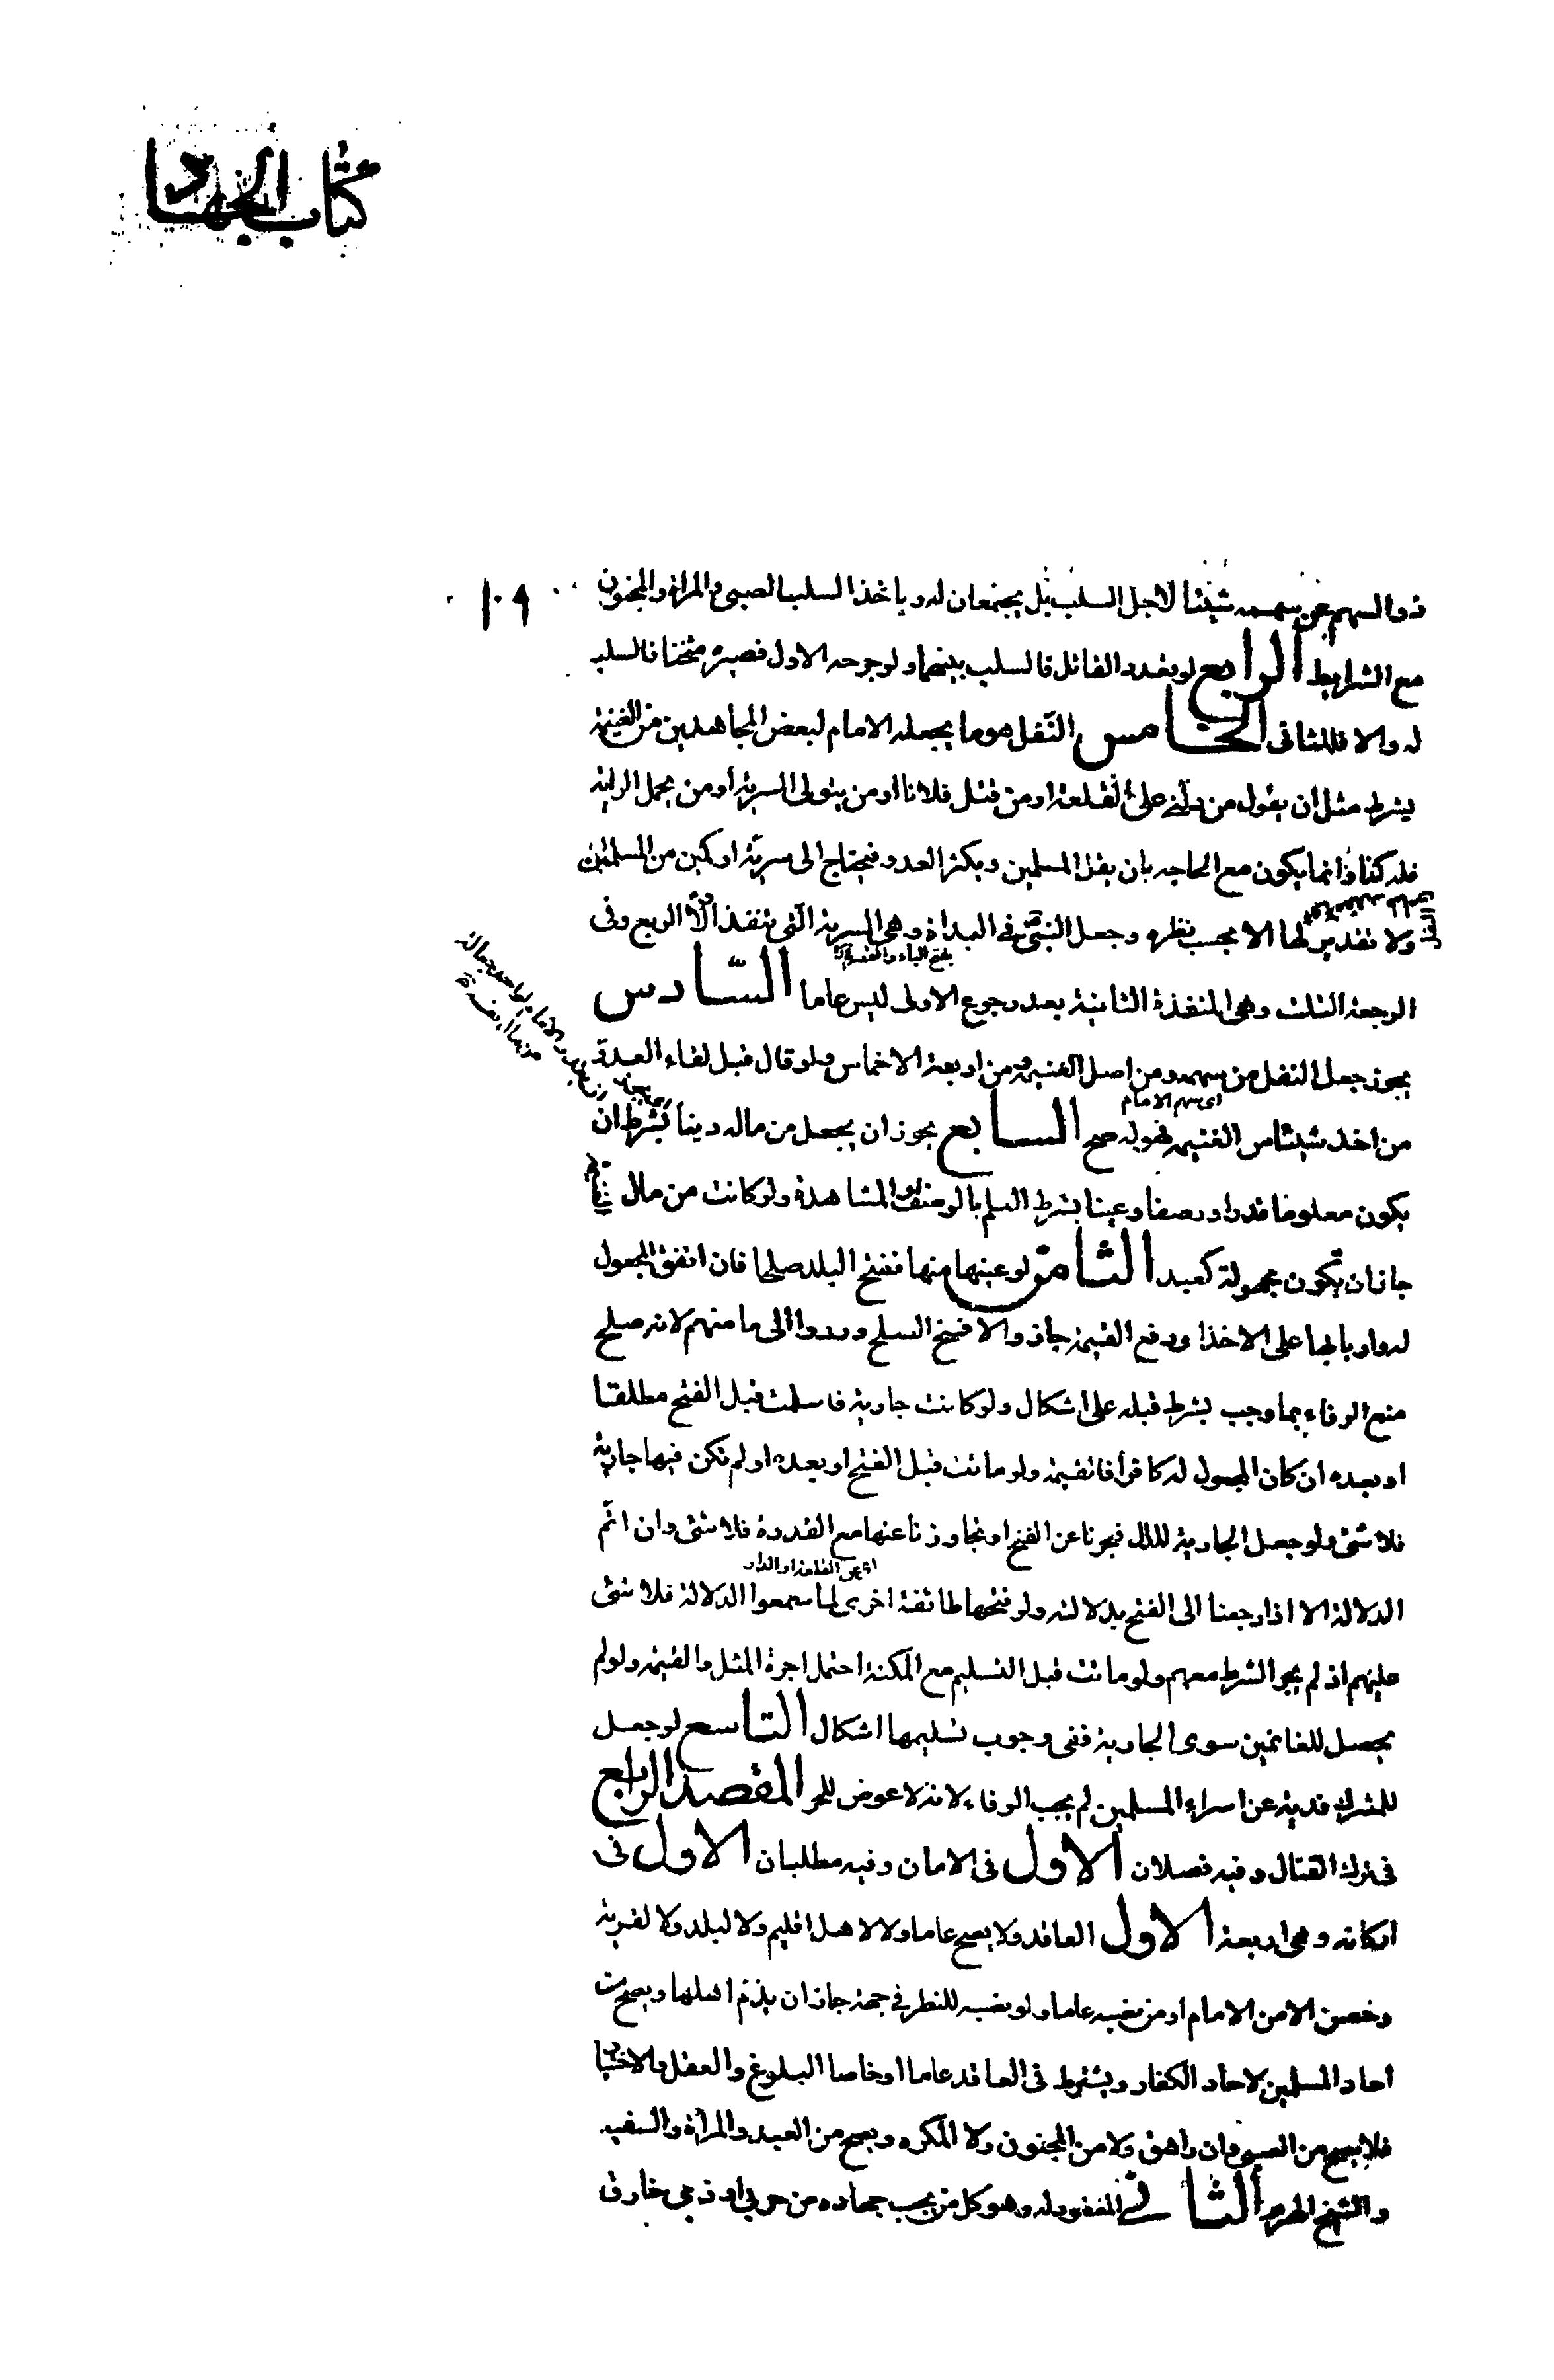 كتاب الجهاد
١٠٩
ذو السهم عن سهمه شيئا لاجل السلب بل يجتمعان له وياخذ السلب الصبى والمراة والمجنون
مع الشرايط الرابع لو تعدد القاتل فالسلب بينهما ولو جرحه الاول فصيره مثخنا فالسلب
له والا فللثانى الخامس النّفل هو ما يجعله الامام لبعض المجاهدين من الغنيمة
بشرط مثل ان يقول من دلّنى على القلعة او من قتل فلانا او من يتولى السرية او من يحمل الراية
فله كذا وانما يكون مع الحاجه بان يقل المسلمين ويكثر العدو فيحتاج الى سريّة او كمين من المسلمين
ولا تقدير لها الا بحسب نظره وجعل النبى فى البداة وهى السرية الّتى تنفذ اولا الربع وفى
بفتح الباء
الرجعة الثلث وهى المنفذة الثانية بعد رجوع الاولى ليس عاما السّادس
يجوز جعل النفل من سهمه ومن اصل الغنيمة ومن اربعة الاخماس ولو قال قبل لقاء العدوّ
اى سهم الامام
من اخذ شيئا من الغنيمة فهو له صح السابع يجوز ان يجعل من ماله دينا بشرط ان
يكون معلوما قدرا ووصفا وعينا بشرط العلم بالوصف او المشاهدة ولو كانت من مال
جاز ان تكون مجهولة كعبد الثامن لو عينها منها ففتح البلد صلحا فان اتفق المجعول
له واربابها على الاخذ او دفع القيمة جاز والا فسخ الصلح وردوا الى مامنهم لانه صلح
منع الوفاء بما وجب بشرط قبله على اشكال ولو كانت جارية فاسلمت قبل الفتح مطلقا
او بعده ان كان المجعول له كافرا فالقيمة ولو ماتت قبل الفتح او بعده او لم تكن فيها جارية
فلا شئ ولو جعل الجارية للدال فعجزنا عن الفتح او تجاوزنا عنها مع القدرة فلا شئ وان اتم
اى عن القلعة او الدار
الدلالة الا اذا رجعنا الى الفتح بدلالته ولو فتحها طائفة اخرى لما سمعوا الدلالة فلا شئ
عليهم اذ لم يجر الشرط معهم ولو ماتت قبل التسليم مع المكنة احتمل اجرة المثل والقيمة ولو لم
يحصل للغانمين سوى الجارية ففى وجوب تسليمها اشكال التاسع لو جعل
للمشرك فدية عن اسراء المسلمين لم يجب الوفاء لانه لا عوض للحر المقصد الرابع
فى ترك القتال وفيه فصلان الاول فى الامان وفيه مطلبان الاول فى
اركانه وهى اربعة الاول العاقد ولا يصح عاما ولا لاهل اقليم ولا لبلد ولا لقرية
وحصن الا من الامام او من نصبه عاما ولو نصبه للنظر فى جهة جاز ان يذم اهلها ويصح من
احاد المسلمين لاحاد الكفار ويشترط فى العاقد عاما او خاصا البلوغ والعقل والاختيار
فلا يصح من الصبى وان راهق ولا من المجنون ولا المكره ويصح من العبد والمرأة والسفيه
والشيخ الهرم الثانى المعقود له وهو كل من يجب جهاده من حربى او ذمى خارق